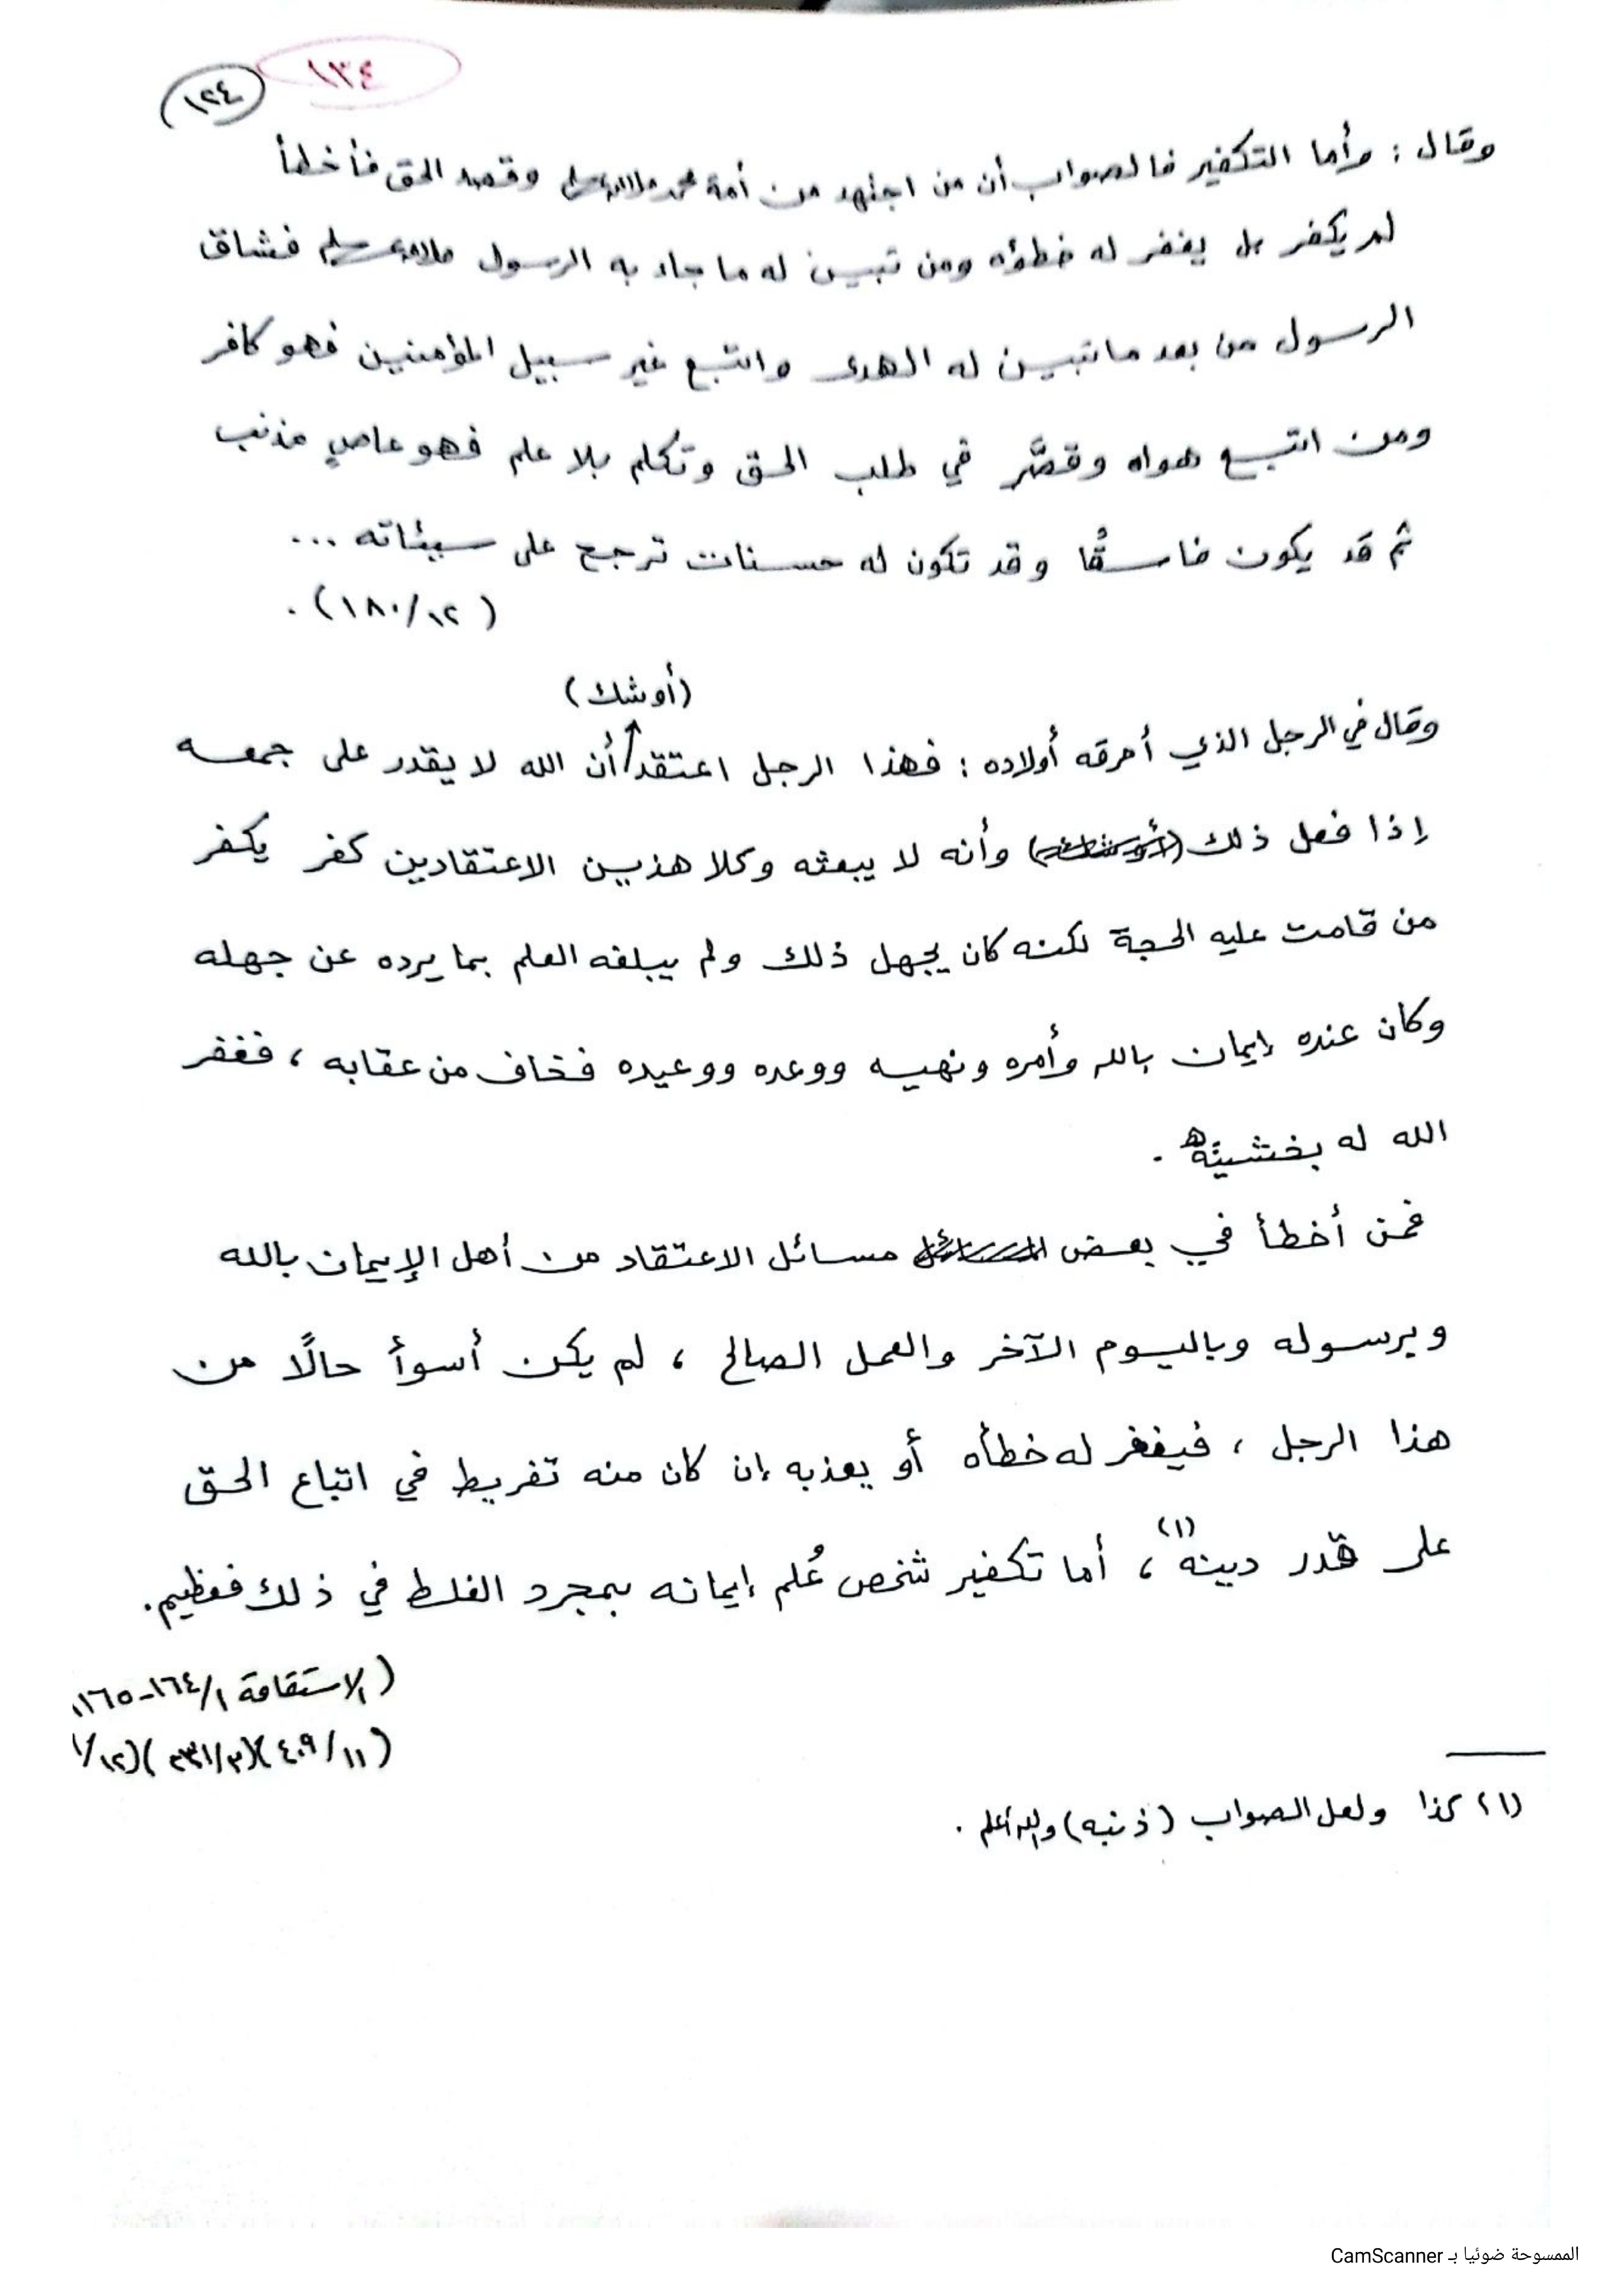 ١٣٤
١٢٤
وقال : وأما التكفير فالصواب أن من اجتهد من أمة محمد صلى الله عليه وسلم وقصد الحق فأخطأ
لم يكفر بل يغفر له خطؤه ومن تبين له ما جاء به الرسول صلى الله عليه وسلم فشاق
الرسول من بعد ما تبين له الهدى واتبع غير سبيل المؤمنين فهو كافر
ومن اتبع هواه وقصَّر في طلب الحق وتكلم بلا علم فهو عاصٍ مذنب
ثم قد يكون فاسقًا وقد تكون له حسنات ترجح على سيئاته ...
(١٨٠/١٢) .
(أو شك)
وقال في الرجل الذي أحرقه أولاده : فهذا الرجل اعتقد أن الله لا يقدر على جمعه
إذا فعل ذلك (أو شك) وأنه لا يبعثه وكلا هذين الاعتقادين كفر يكفر
من قامت عليه الحجة لكنه كان يجهل ذلك ولم يبلغه العلم بما يرده عن جهله
وكان عنده إيمان بالله وأمره ونهيه ووعده ووعيده فخاف من عقابه ، فغفر
الله له بخشيته .
فمن أخطأ في بعض المسائل مسائل الاعتقاد من أهل الإيمان بالله
وبرسوله وباليوم الآخر والعمل الصالح ، لم يكن أسوأ حالًا من
هذا الرجل ، فيغفر له خطأه أو يعذبه إن كان منه تفريط في اتباع الحق
على قدر دينه (١) ، أما تكفير شخص عُلم إيمانه بمجرد الغلط في ذلك فعظيم.
(الاستقامة ١/ ١٦٤-١٦٥
(١١/ ٤٠٩)(٣/٢٣١)(١٢/
(١) كذا ولعل الصواب (ذنبه) والله أعلم .
الممسوحة ضوئيا بـ CamScanner